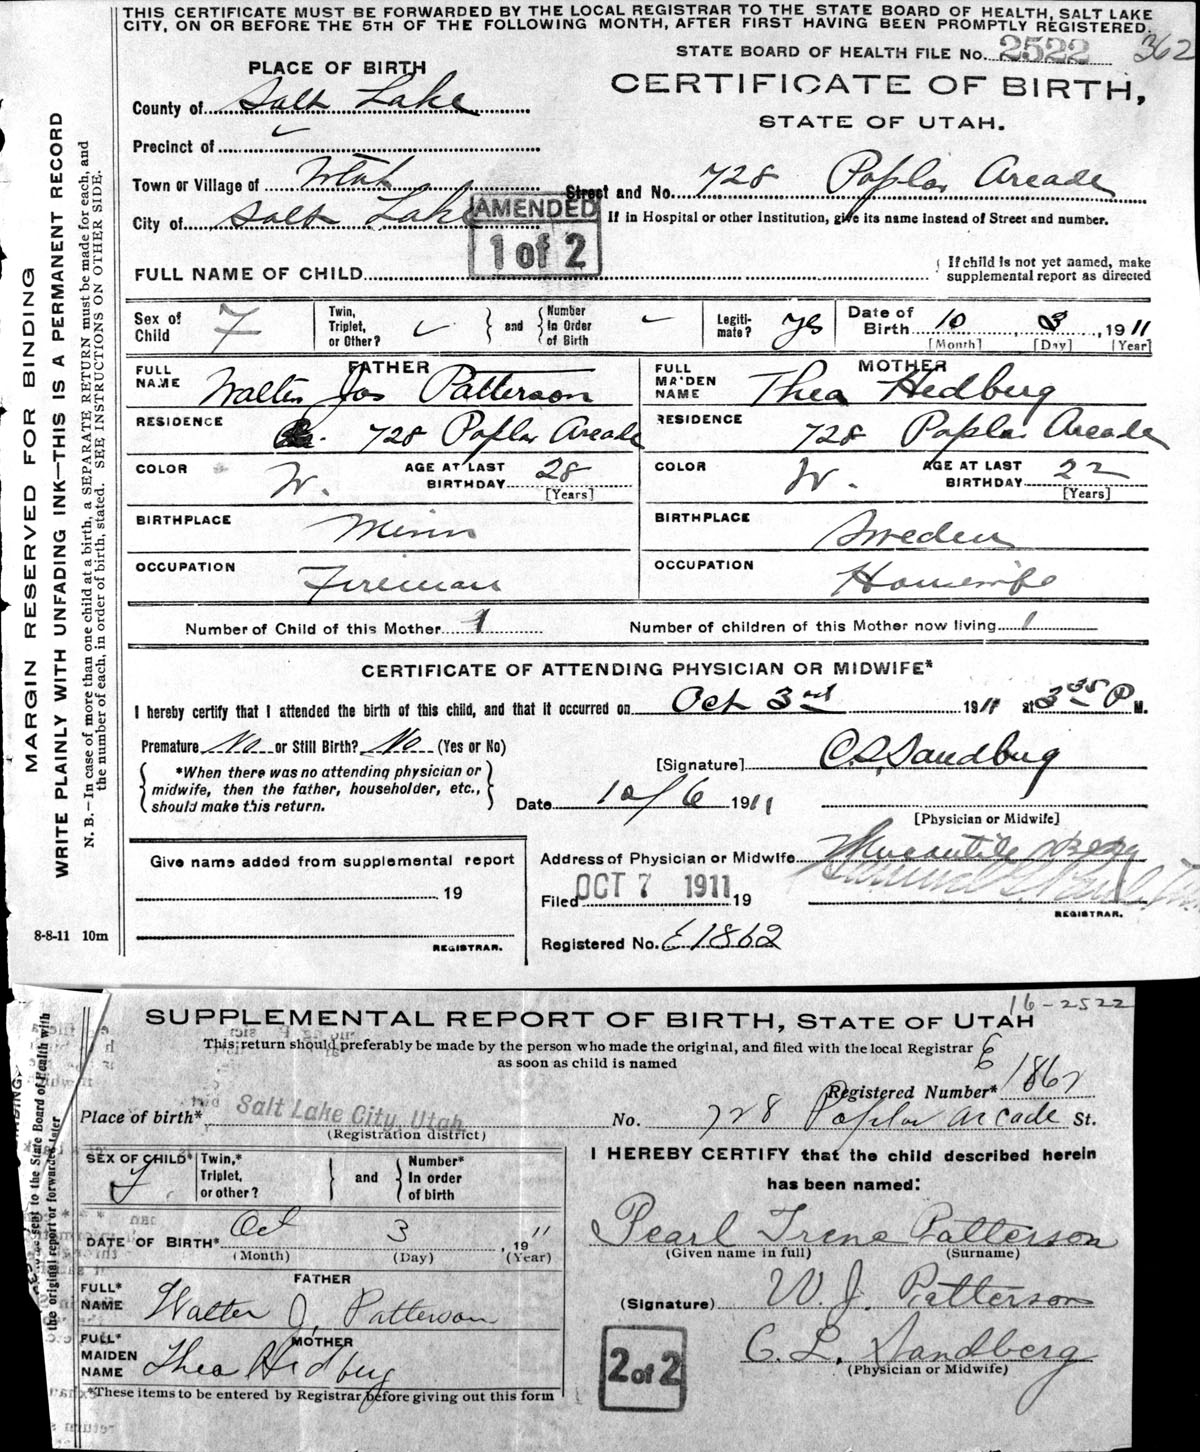 THIS CERTIFICATE MUST BE FORWARDED BY THE LOCAL REGISTRAR TO THE STATE BOARD OF HEALTH, SALT LAKE
CITY, ON OR BEFORE THE 5TH OF THE FOLLOWING MONTH, AFTER FIRST HAVING BEEN PROMPTLY REGISTERED.
STATE BOARD OF HEALTH FILE No. 2522 362
PLACE OF BIRTH
CERTIFICATE OF BIRTH,
STATE OF UTAH.
County of Salt Lake
Precinct of
Town or Village of Utah
Street and No. 728 Poplar Arcade
City of Salt Lake
If in Hospital or other Institution, give its name instead of Street and number.
AMENDED
1 of 2
FULL NAME OF CHILD
If child is not yet named, make
supplemental report as directed
Sex of Child F
Twin, Triplet, or Other?
and
Number In Order of Birth
Legiti-mate? yes
Date of Birth 10, 3, 1911
[Month] [Day] [Year]
FATHER
FULL NAME Walter Jos Patterson
MOTHER
FULL MAIDEN NAME Thea Hedberg
RESIDENCE 728 Poplar Arcade
RESIDENCE 728 Poplar Arcade
COLOR W.
AGE AT LAST BIRTHDAY 28
[Years]
COLOR W.
AGE AT LAST BIRTHDAY 22
[Years]
BIRTHPLACE Minn
BIRTHPLACE Sweden
OCCUPATION Fireman
OCCUPATION Housewife
Number of Child of this Mother 1
Number of children of this Mother now living 1
CERTIFICATE OF ATTENDING PHYSICIAN OR MIDWIFE*
I hereby certify that I attended the birth of this child, and that it occurred on Oct 3rd 1911 at 3 35 P M.
Premature No or Still Birth? No (Yes or No)
*When there was no attending physician or
midwife, then the father, householder, etc.,
should make this return.
[Signature] C. L. Sandberg
Date 10/6 1911
[Physician or Midwife]
Give name added from supplemental report
19
REGISTRAR.
Address of Physician or Midwife Mercantile
Filed OCT 7 1911 19
REGISTRAR.
Registered No. E1862
8-8-11 10m
MARGIN RESERVED FOR BINDING
WRITE PLAINLY WITH UNFADING INK—THIS IS A PERMANENT RECORD
N. B.—In case of more than one child at a birth, a SEPARATE RETURN must be made for each, and
the number of each, in order of birth, stated. SEE INSTRUCTIONS ON OTHER SIDE.
16-2522
SUPPLEMENTAL REPORT OF BIRTH, STATE OF UTAH
This return should preferably be made by the person who made the original, and filed with the local Registrar
as soon as child is named
Registered Number* E 1862
Place of birth* Salt Lake City, Utah
(Registration district)
No. 728 Poplar Arcade St.
SEX OF CHILD* F
Twin,* Triplet, or other?
and
Number* In order of birth
I HEREBY CERTIFY that the child described herein
has been named:
DATE OF BIRTH* Oct 3, 1911
(Month) (Day) (Year)
Pearl Irene Patterson
(Given name in full) (Surname)
FATHER
FULL* NAME Walter J. Patterson
(Signature) W. J. Patterson
MOTHER
FULL* MAIDEN NAME Thea Hedberg
C. L. Sandberg
(Physician or Midwife)
2 of 2
*These items to be entered by Registrar before giving out this form
sent to the State Board of Health with
the original report or forwarded later